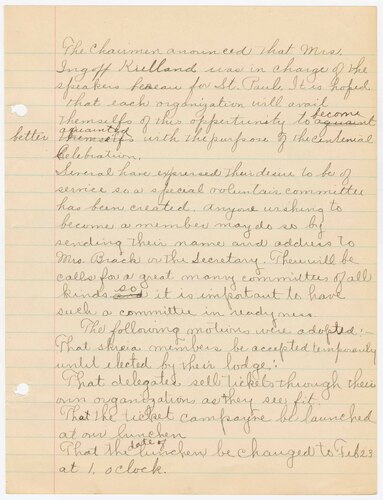 The Chairmen anounced that Mrs.
Ingoff Kielland was in charge of the
speakers bureau for St. Paul. It is hoped
that each organization will avail
themselfs of this opportunity to become
better aquainted with the purpose of the Centenial
Celebration.
Several have expressed their desire to be of
service so a special voluntair committee
has been created. Anyone wishing to
become a member may do so by
sending their name and address to
Mrs. Brack or the Secretary. There will be
calls for a great many committees of all
kinds so it is important to have
such a committee in readyness.
The following motions were adopted:-
That members be accepted temporarily
until elected by their lodge:
That delegates sell tickets through their
own organizations as they see fit.
That the ticket campaigne be launched
at our lunchen
That the date of lunchen be changed to Feb 23
at 1. oclock.